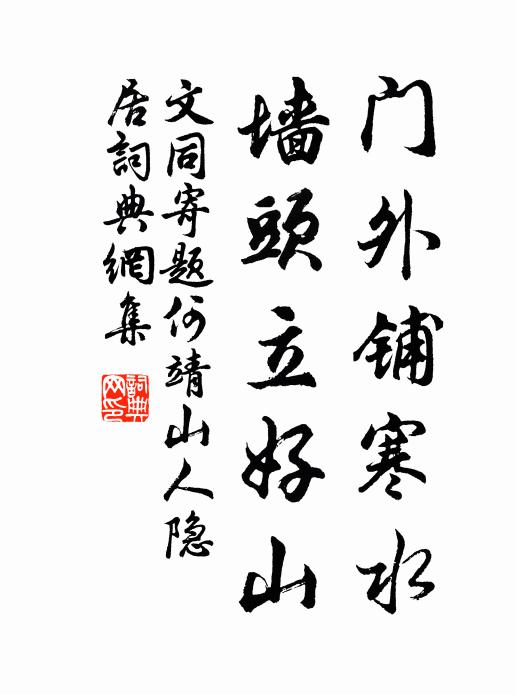 门外铺寒水
墙頭立好山
文同寄题何靖山人隐
居詞典網集
詞典
网印